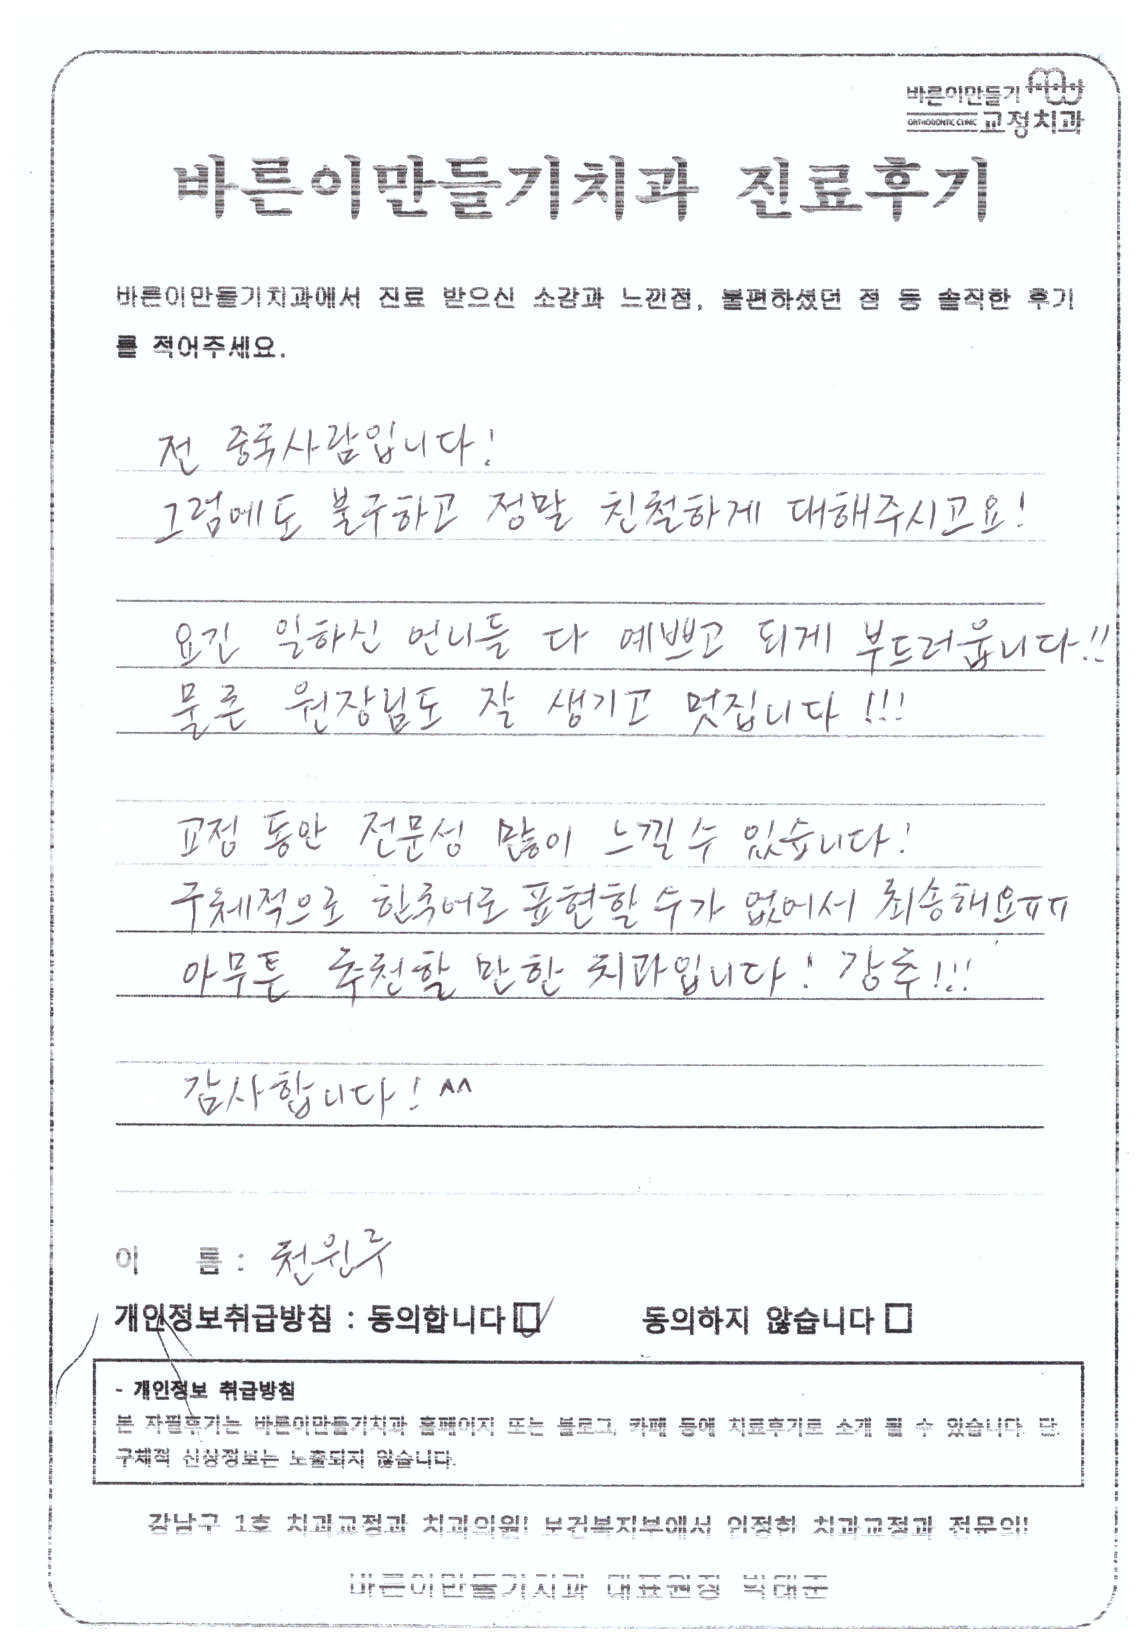 바른이만들기
ORTHODONTIC CLINIC 교정치과
바른이만들기치과 진료후기
바른이만들기치과에서 진료 받으신 소감과 느낀점, 불편하셨던 점 등 솔직한 후기
를 적어주세요.
전 중국사람입니다!
그럼에도 불구하고 정말 친절하게 대해주시고요!
요긴 일하신 언니들 다 예쁘고 되게 부드러웁니다!!
물론 원장님도 잘 생기고 멋집니다!!!
교정 동안 전문성 많이 느낄 수 있습니다!
구체적으로 한국어로 표현할 수가 없어서 죄송해요ㅠㅠ
아무튼 추천할 만한 치과입니다! 강추!!!
감사합니다! ^^
이 름 : 천원루
개인정보취급방침 : 동의합니다☑ 동의하지 않습니다☐
- 개인정보 취급방침
본 자필후기는 바른이만들기치과 홈페이지 또는 블로그, 카페 등에 치료후기로 소개 될 수 있습니다. 단,
구체적 신상정보는 노출되지 않습니다.
강남구 1호 치과교정과 치과의원! 보건복지부에서 인정한 치과교정과 전문의!
바른이만들기치과 대표원장 박태준